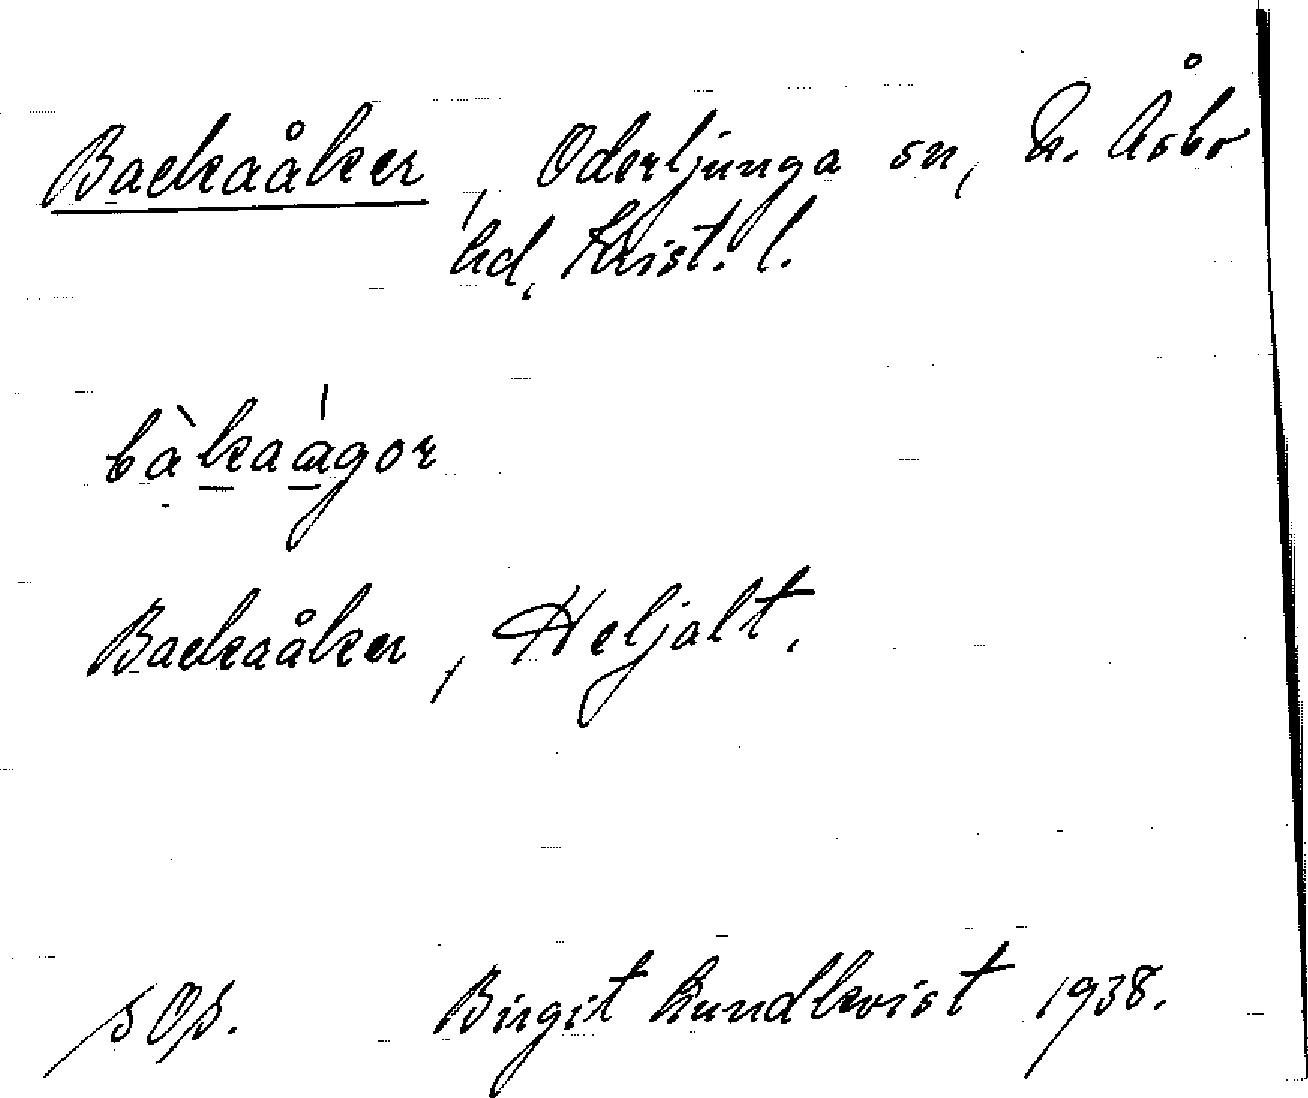 Backaåker, Oderljunga sn, N. Åsbo
hd, Krist. l.
bàkaágor
Backaåker, Heljalt.
Birgit Lundkvist 1938.